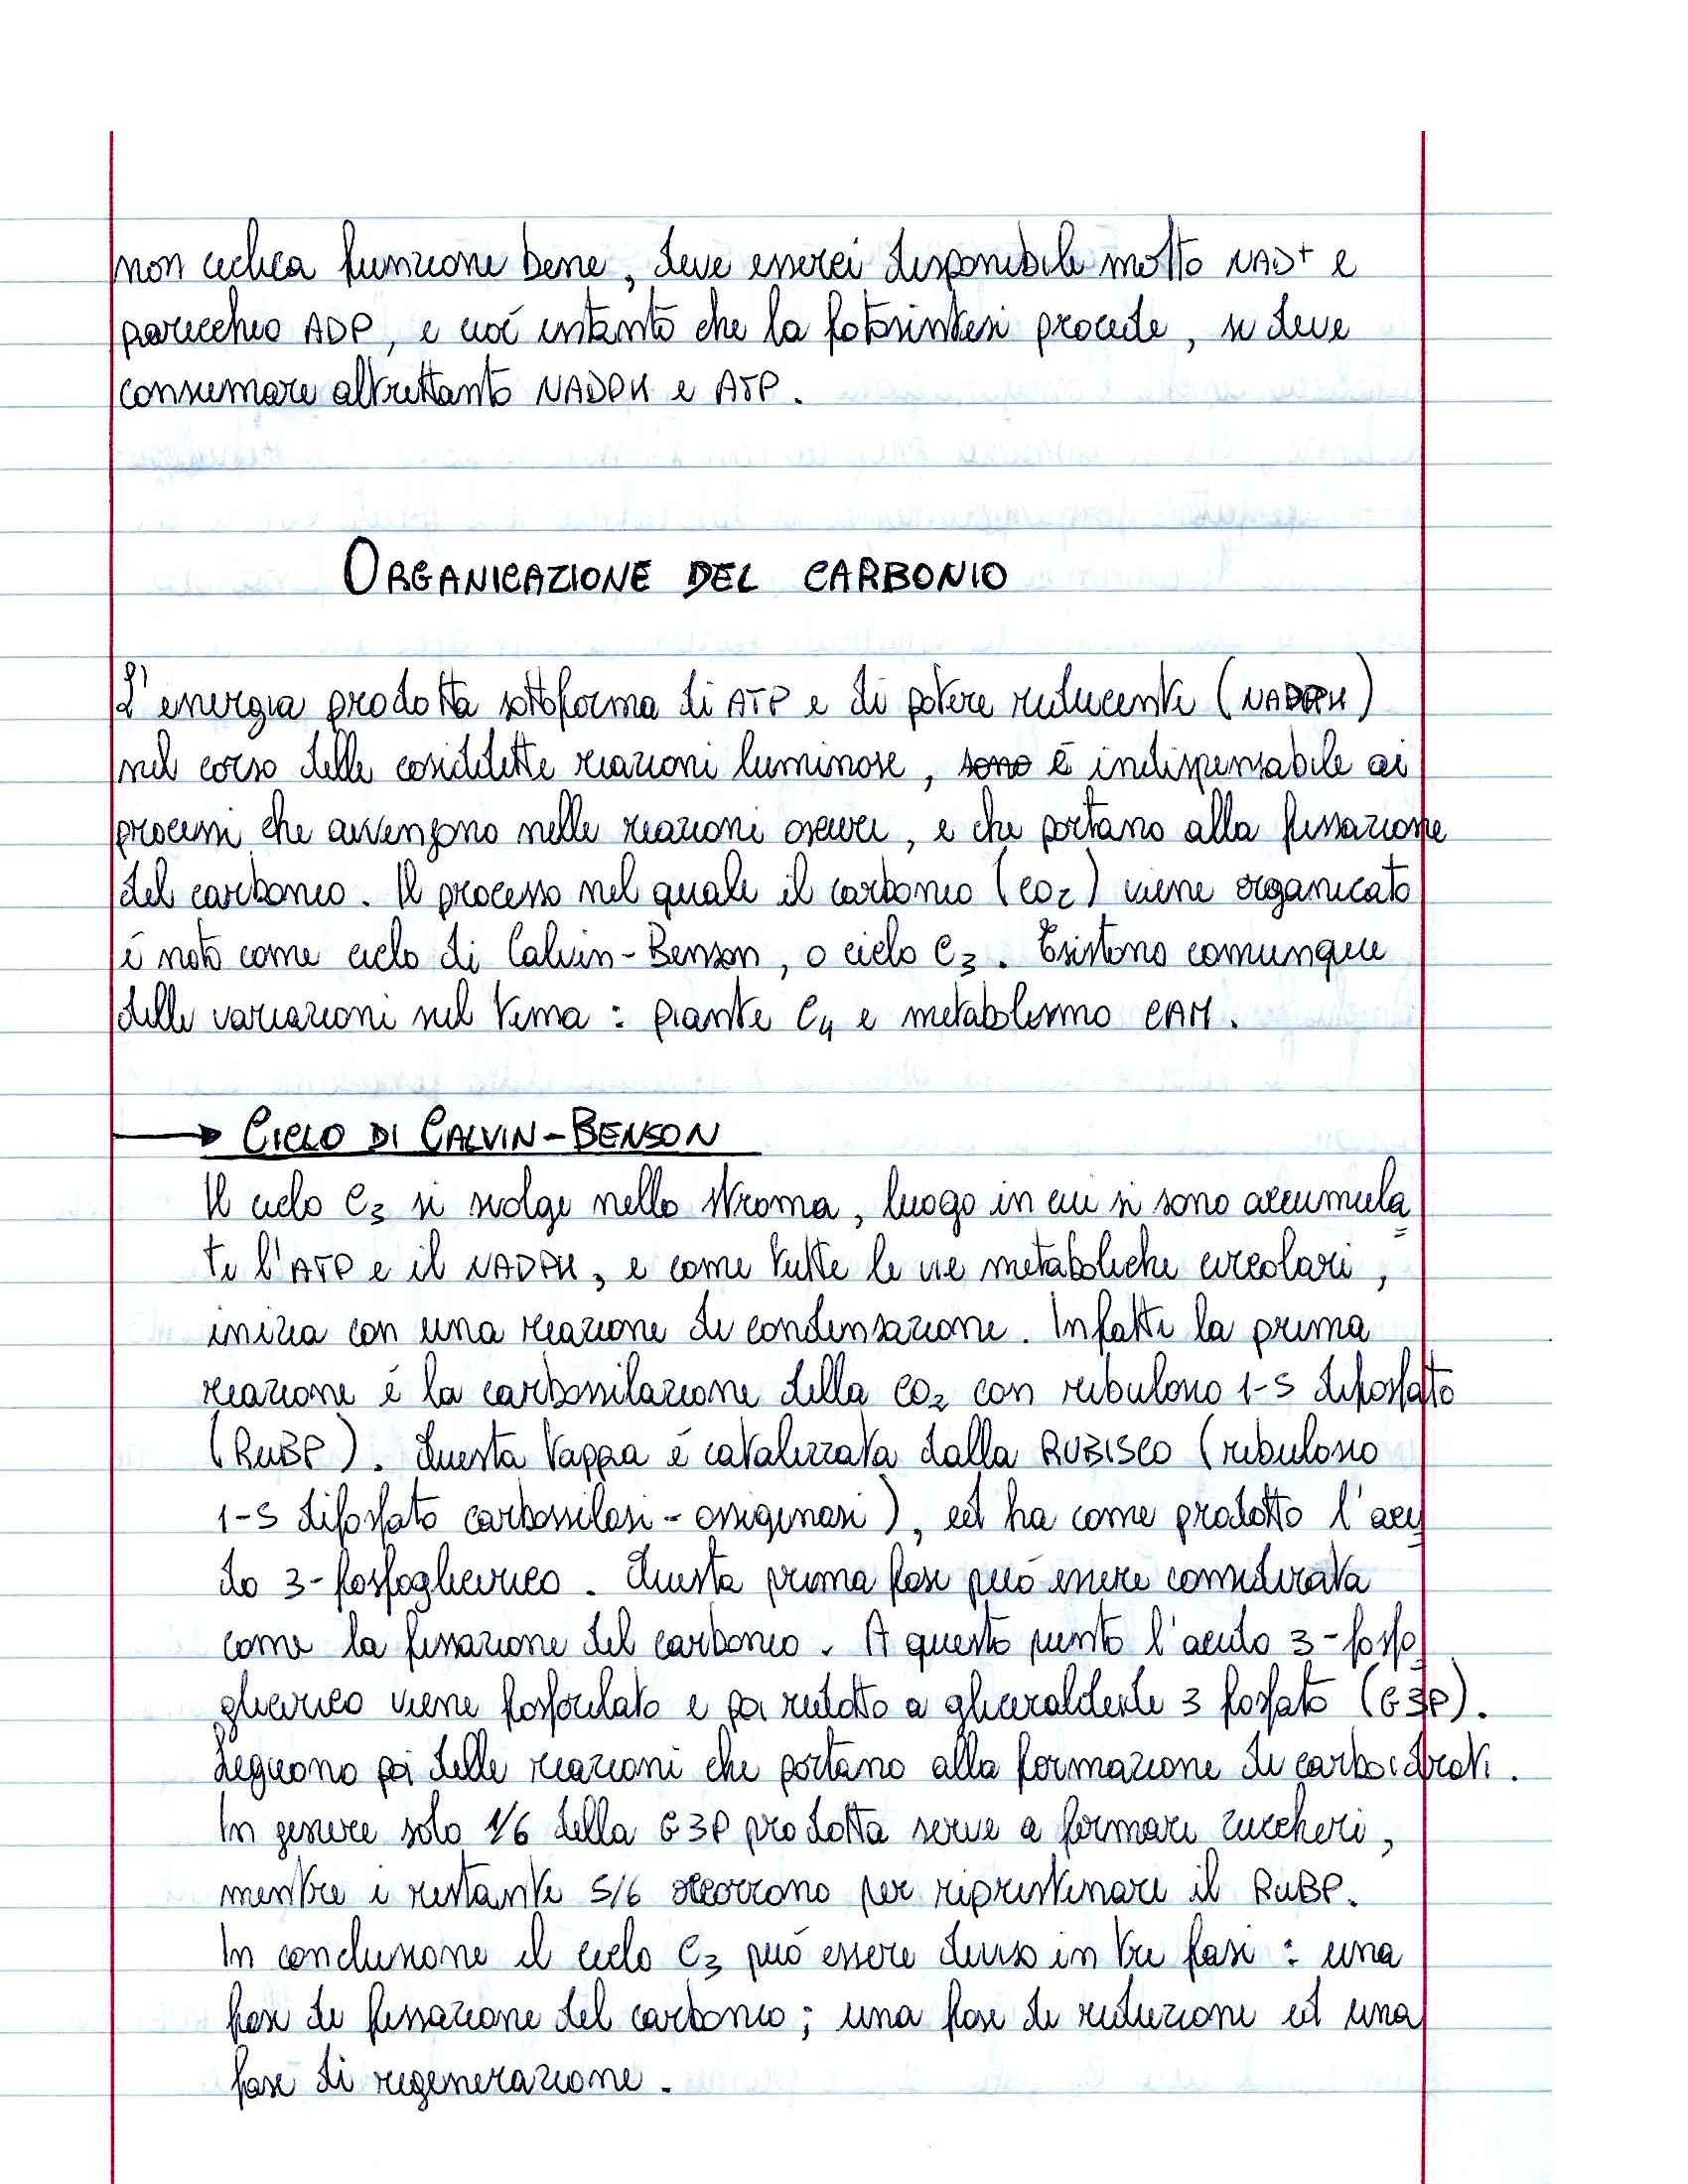 non ciclica funzione bene, deve esserci disponibile molto NAD+ e
parecchio ADP, e così intanto che la fotosintesi procede, si deve
consumare altrettanto NADPH e ATP.
ORGANICAZIONE DEL CARBONIO
L'energia prodotta sottoforma di ATP e di potere riducente (NADPH)
nel corso delle cosiddette reazioni luminose, sono è indispensabile ai
processi che avvengono nelle reazioni oscure, e che portano alla fissazione
del carbonio. Il processo nel quale il carbonio (CO2) viene organicato
é noto come ciclo di Calvin-Benson, o ciclo C3. Esistono comunque
delle variazioni sul tema: piante C4 e metabolismo CAM.
→ CICLO DI CALVIN-BENSON
Il ciclo C3 si svolge nello stroma, luogo in cui si sono accumula=
te l'ATP e il NADPH, e come tutte le vie metaboliche circolari,
inizia con una reazione di condensazione. Infatti la prima
reazione é la carbossilazione della CO2 con ribulosio 1-5 difosfato
(RuBP). Questa tappa é catalizzata dalla RUBISCO (ribulosio
1-5 difosfato carbossilasi-ossigenasi), ed ha come prodotto l'aci
do 3-fosfoglicerico. Questa prima fase può essere considerata
come la fissazione del carbonio. A questo punto l'acido 3-fosfo
glicerico viene fosforilato e poi ridotto a gliceraldeide 3 fosfato (G3P).
Seguono poi delle reazioni che portano alla formazione di carboidrati.
In genere solo 1/6 della G3P prodotta serve a formare zuccheri,
mentre i restanti 5/6 occorrono per ripristinare il RuBP.
In conclusione il ciclo C3 può essere diviso in tre fasi: una
fase di fissazione del carbonio; una fase di riduzione ed una
fase di rigenerazione.